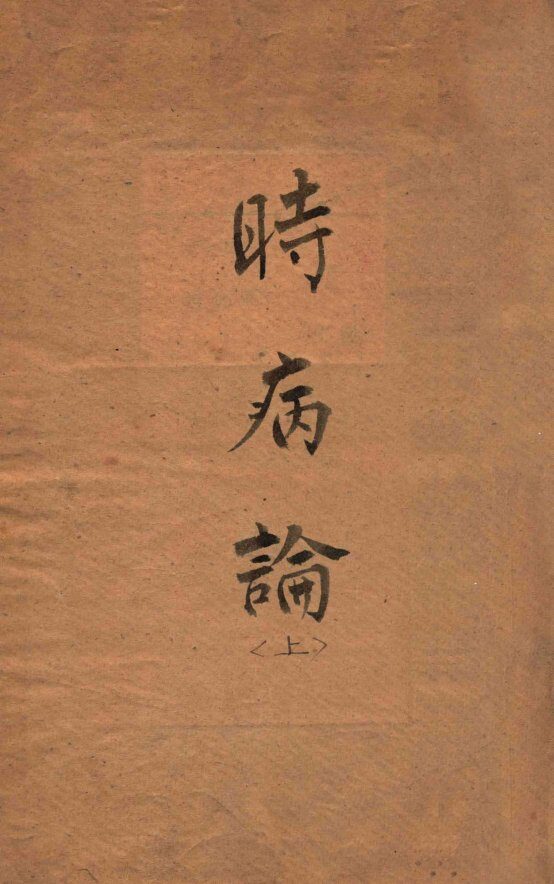 時病論
<上>